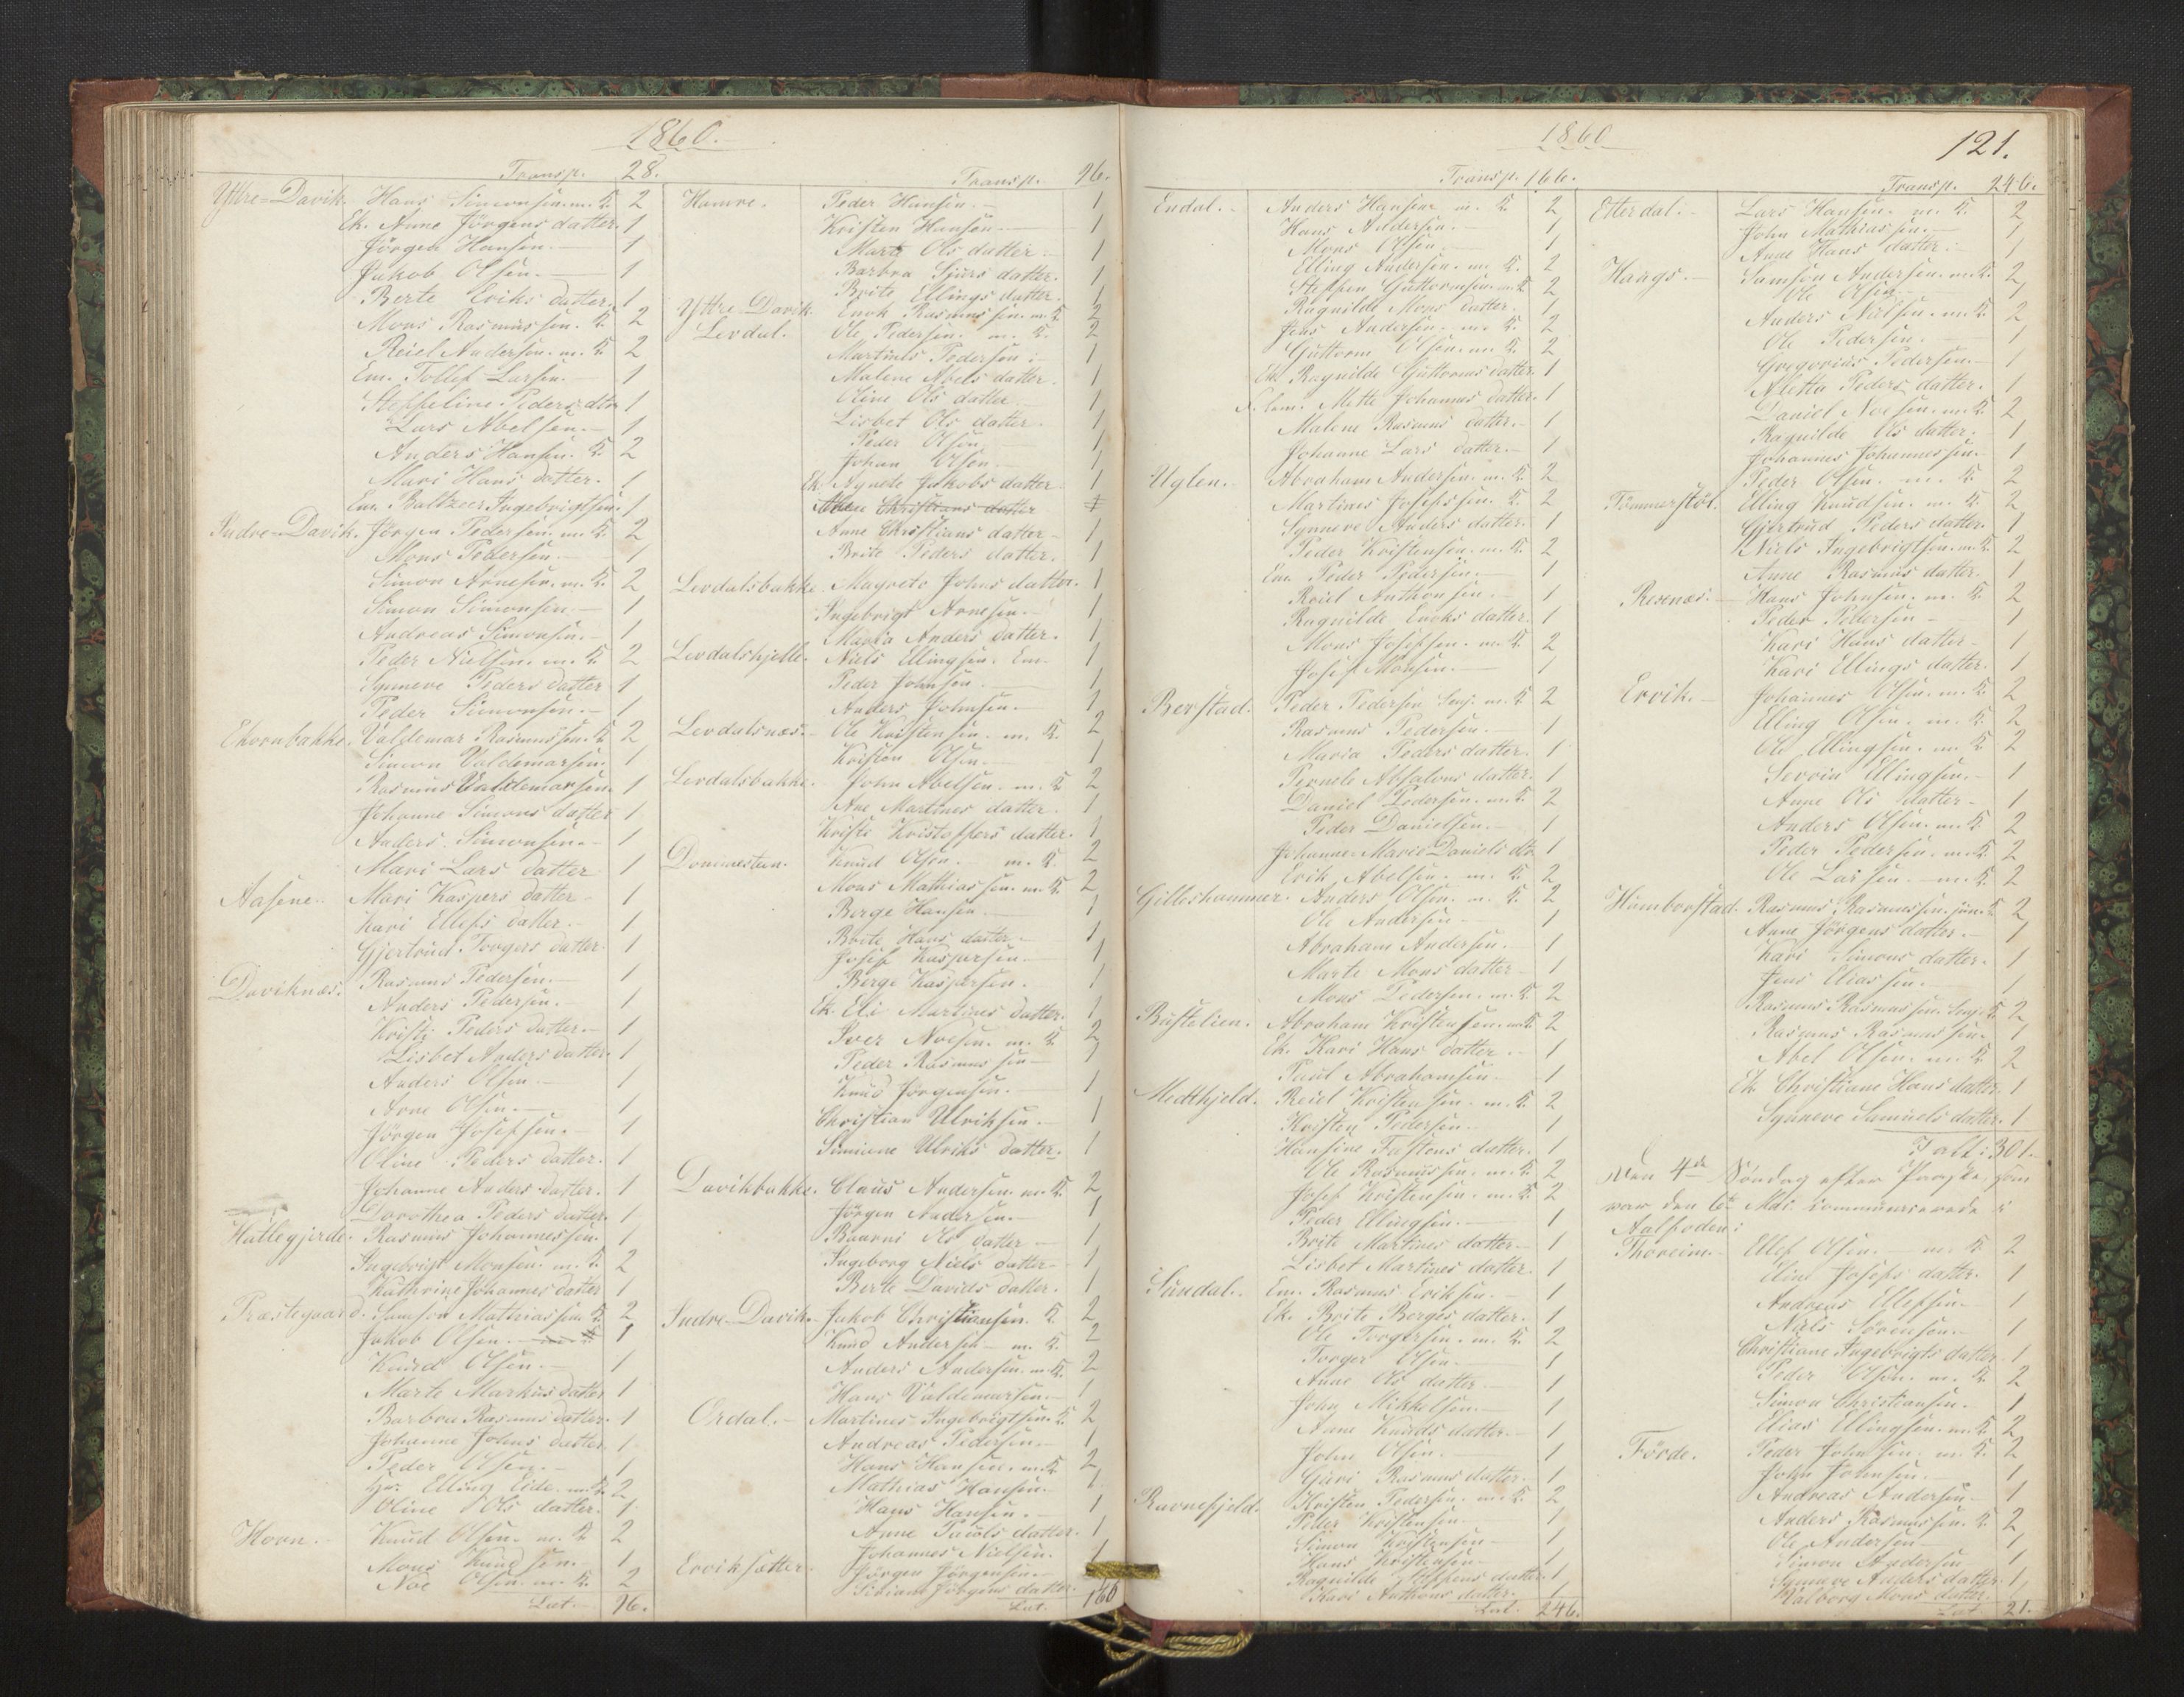 1860.
Transp. 28.
Yttre-Davik. Hans Simonsen m. K. 2
Ek. Anne Jörgens datter. 1
Jörgen Hansen. — 1
Jakob Olsen. — 1
Berte Eriks datter. 1
Mons Rasmussen. K. 2
Reiel Andersen. m. K. 2
Em. Tollef Larsen. — 1
Steffeline Peders dtr 1
Lars Abelsen. — 1
Anders Hansen. K. 2
Mari Hans datter. 1
Em. Baltzer Ingebrigtsen. 1
Indre-Davik. Jörgen Pedersen. m. K. 2
Mons Pedersen. — 1
Simon Arnesen. m. K. 2
Simon Simonsen. — 1
Andreas Simonsen. — 1
Peder Nielsen. m. K. 2
Synneve Peders datter 1
Peder Simonsen. — 1
Ekornbakke. Valdemar Rasmussen. K. 2
Simon Valdemarsen. 1
Rasmus Valdemarsen. 1
Johanne Simons datter 1
Anders Simonsen. — 1
Mari Lars datter 1
Aasene. Mari Kaspers datter 1
Kari Ellefs datter. — 1
Gjertrud Torgers datter. 1
Daviknæs. Rasmus Pedersen. — 1
Anders Pedersen. — 1
Kristi Peders datter. — 1
Lisbet Anders datter. 1
Anders Olsen. — 1
Arne Olsen. — 1
Jörgen Josefsen. — 1
Oline Peders datter. 1
Johanne Anders datter. 1
Dorothea Peders datter. 1
Hatlegjerde. Rasmus Johannessen. 1
Ingebrigt Monsen. m. K. 2
Kathrine Johannes datter 1
Præstegaard. Samson Mathiassen K. 2
Jakob Olsen. — 1
Knud Olsen. — 1
Marte Markus datter 1
Barbra Rasmus datter. 1
Johanne Johns datter. 1
Peder Olsen. — 1
Hr. Elling Eide. m. K. 2
Oline Ols datter. 1
Horn. Knud Olsen. m. K. 2
Mons Knudsen. 1
Noe Olsen. m. K. 2
Lat. 96.
Transp. 96.
Hamre. Peder Hansen. — 1
Kristen Hansen. — 1
Marte Ols datter 1
Barbra Sjurs datter. 1
Brite Ellings datter. 1
Yttre Davik. Enok Rasmussen. m. K. 2
Levdal. Ole Pedersen. m. K. 2
Martines Pedersen. 1
Malene Abels datter. 1
Oline Ols datter 1
Lisbet Ols datter. 1
Peder Olsen 1
Johan Olsen. 1
Ek. Agnete Jakobs datter 1
Christians datter
Anne Christians datter 1
Brite Peders datter. 1
Levdalsbakke. Magrete Johns datter. 1
Ingebrigt Arnesen. 1
Maria Anders datter. 1
Levdalskjelle. Niels Ellingsen. Em. 1
Peder Johnsen. 1
Anders Johnsen. 1
Levdalsnæs. Ole Kristensen. m. K. 2
Kristen Olsen. 1
Levdalsbakke. John Abelsen. m. K. 2
Ane Martines datter. 1
Kriste Kristoffers datter. 1
Dommesten. Knud Olsen. m. K. 2
Mons Mathiassen. m. K. 2
Berge Hansen. 1
Brite Hans datter 1
Josef Kaspersen. 1
Berge Kaspersen. 1
Ek. Eli Martines datter. 1
Iver Noesen. m. K. 2
Peder Rasmussen 1
Knud Jörgensen. 1
Christian Ulriksen. 1
Simiane Ulriks datter. 1
Davikbakke. Claus Andersen. m. K. 2
Jörgen Andersen. 1
Raanni Ols datter 1
Ingeborg Niels datter 1
Berte Davids datter. 1
Indre-Davik. Jakob Christiansen. K. 2
Knud Andersen m. K. 2
Anders Andersen. m. K. 2
Hans Valdemarsen. 1
Ordal. Martines Ingebrigtsen. K. 2
Andreas Pedersen. 1
Hans Hansen. m. K. 2
Mathias Hansen. 1
Hans Hansen. 1
Anne Pauls datter. 1
Johannes Nielsen. 1
Erviksætter Jörgen Jörgensen.
Jörgens datter.
Lat. 166
1860
121.
Transp. 166.
Endal. Anders Hansen m. K. 2
Hans Andersen. 1
Mons Olsen. 1
Elling Andersen. m. K. 2
Steffen Guttormsen. m. K. 2
Ragnilde Mons datter. 1
Jens Andersen. m. K. 2
Guttorm Olsen. m. K. 2
Ek. Ragnilde Guttorms datter. 1
Mette Johannes datter. 1
Malene Rasmus datter. 1
Johanne Lars datter. 1
Uglen. Abraham Andersen. m. K. 2
Martines Josefsen. K. 2
Synneve Anders datter. 1
Peder Kristensen. m. K. 2
Em. Peder Pedersen. 1
Reiel Anthonsen. 1
Ragnilde Enoks datter. 1
Mons Josefsen. m. K. 2
Josef Monsen. 1
Berstad. Peder Pedersen Senj. m. K. 2
Rasmus Pedersen. 1
Maria Peders datter. 1
Pernele Absalons datter. 1
Daniel Pedersen. m. K. 2
Peder Danielsen. 1
Johanne Marie Daniels dtr 1
Erik Abelsen. m. K. 2
Gilleshammer. Anders Olsen. m. K. 2
Ole Andersen 1
Abraham Andersen. 1
Marte Mons datter 1
Mons Pedersen. m. K. 2
Bustelien. Abraham Kristensen. m. K. 2
Ek. Kari Hans datter 1
Paul Abrahamsen 1
Medthjeld. Reiel Kristensen. m. K. 2
Kristen Pedersen. 1
Hansine Fastens datter. 1
Ole Rasmussen. m. K. 2
Josef Kristensen. m. K. 2
Peder Ellingsen. 1
Brite Martines datter 1
Lisbet Martines datter. 1
Sundal. Em. Rasmus Eriksen. 1
Ek. Brite Berges datter. 1
Ole Torgersen. m. K. 2
Torger Olsen. 1
Anne Ols datter 1
John Mikkelsen. 1
Anne Knuds datter. 1
John Olsen. 1
Guri Rasmus datter. 1
Ravnefjeld. Kristen Pedersen. m. K. 2
Peder Kristensen. 1
Simon Kristensen 1
Hans Kristensen 1
Ragnilde Steffens datter. 1
Kari Anthons datter. 1
Lat. 246.
Transp. 246.
Etterdal. Lars Hansen. m. K. 2
John Mathiassen. 1
Ane Hans datter. 1
Haags. Samson Andersen. m. K. 2
Ole Olsen 1
Anders Nielsen. m. K. 2
Ole Pedersen. 1
Gregorius Pedersen. 1
Aletta Peders datter. 1
Daniel Noesen. m. K. 2
Ragnilde Ols datter. 1
Johannes Johannessen. 1
Peder Olsen. m. K. 2
Tömmerstöl. Elling Knudsen. m. K. 2
Gjertrud Peders datter. 1
Niels Ingebrigtsen. m. K. 2
Anne Rasmus datter. 1
Resenæs. Hans Johnsen. m. K. 2
Peder Pedersen 1
Kari Hans datter 1
Kari Ellings datter. 1
Ervik. Johannes Olsen. m. K. 2
Elling Olsen. m. K. 2
Ole Ellingsen. m. K. 2
Severin Ellingsen. 1
Anne Ols datter 1
Anders Olsen. m. K. 2
Peder Pedersen. m. K. 2
Ole Larsen. m. K. 2
Humborstad. Rasmus Rasmussen. jun. K. 2
Anne Jörgens datter. 1
Kari Simons datter. 1
Jens Eliassen. 1
Rasmus Rasmussen. Senj. K. 2
Rasmus Rasmussen. 1
Abel Olsen. m. K. 2
Ek. Christiane Hans datter. 1
Synneve Samuels datter. 1
Talt: 301.
Den 4de Söndag efter Paaske, som
var den 6te Mai. kommunicerede i
Aalfoden:
Thoreim. Ellef Olsen. m. K. 2
Eline Josefs datter. 1
Andreas Ellefsen. 1
Niels Sörensen. 1
Christiane Ingebrigts datter. 1
Peder Olsen. m. K. 2
Simon Christiansen. 1
Elias Ellingsen. m. K. 2
Förde. Peder Johnsen. m. K. 2
John Johnsen. 1
Andreas Andersen 1
Anders Rasmussen. K. 2
Ole Andersen 1
Simon Andersen 1
Synneve Anders datter. 1
Valborg Mons datter.
Lat. 21.